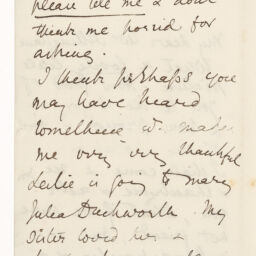 please tell me & don't
think me horrid for
asking.
I think perhaps you
may have heard
something wh. makes
me very very thankful
Leslie is going to marry
Julia Duckworth. My
sister loved her &